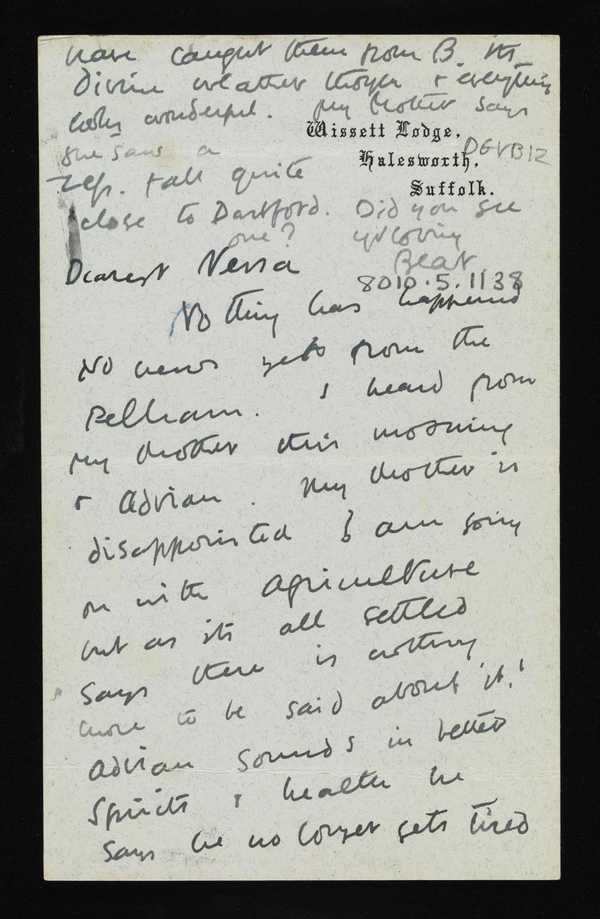 have caught them from B. its
divine weather though & everything
looks wonderful. My mother says
she saw a
Zep. & all quite
close to Dartford. Did you see
one? yr loving
Bear
Wissett Lodge,
Halesworth,
Suffolk.
DGVB12
8010.5.1138
Dearest Nessa
Nothing has happened
No news yet from the
Pelham. I heard from
my mother this morning
& Adrian. My mother is
disappointed I am going
on with agriculture
but as its all settled
says there is nothing
more to be said about it.'
Adrian sounds in better
spirits & health he
says he no longer gets tired